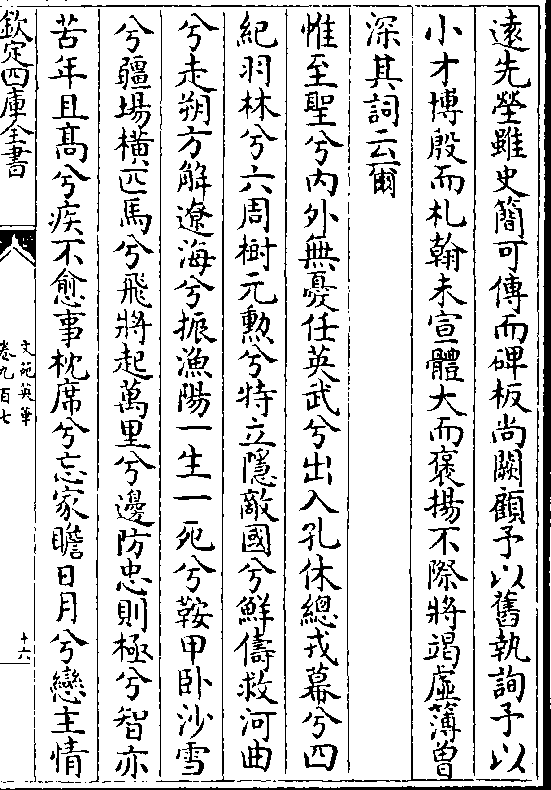 遠先塋雖史簡可傳而碑板尚闕顧予以舊執詢予以
小才博殷而札翰未宣體大而褒揚不際將竭虛薄曽
深其詞云爾
惟至聖兮内外無憂任英武兮出入孔休總戎幕兮四
紀羽林兮六周樹元勲兮特立隱敵國兮鮮儔救河曲
兮走朔方解遼海兮振漁陽一生一死兮鞍甲卧沙雪
兮疆場横匹馬兮飛將起萬里兮邊防忠則極兮智亦
苦年且髙兮疾不愈事枕席兮忘家瞻日月兮戀主情
欽定四庫全書
文苑英華
卷九百七
十六